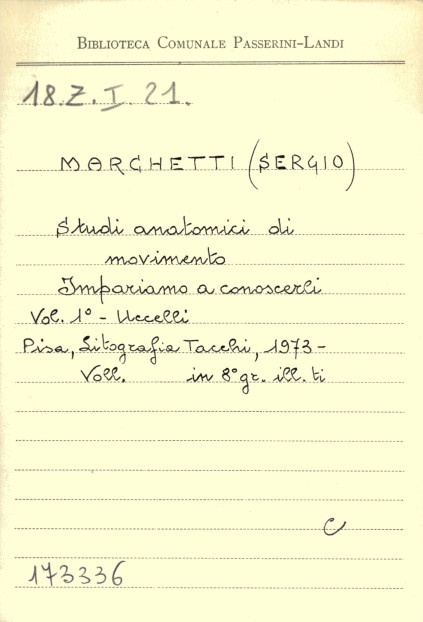 BIBLIOTECA COMUNALE PASSERINI-LANDI
18.Z.I.21.
MARCHETTI (SERGIO)
Studi anatomici di
movimento
Impariamo a conoscerli
Vol. 1° - Uccelli
Pisa, Litografia Tacchi, 1973-
Voll. in 8° gr. ill. ti
C
173336